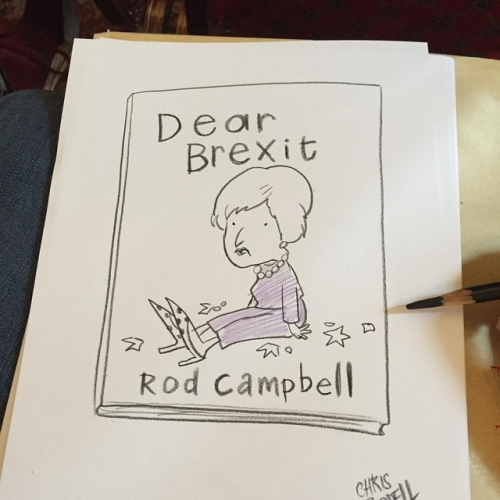 Dear
Brexit
Rod Campbell
CHRIS